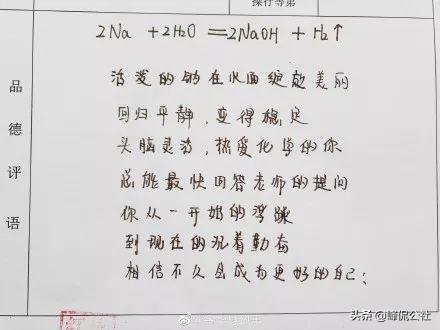 操行等第
2Na +2H2O ══2NaOH + H2↑
品德评语
活泼的钠在水面绽放美丽
回归平静，变得稳定
头脑灵活，热爱化学的你
总能最快回答老师的提问
你从一开始的浮躁
到现在的沉着勤奋
相信不久会成为更好的自己；
头条@峰侃公社